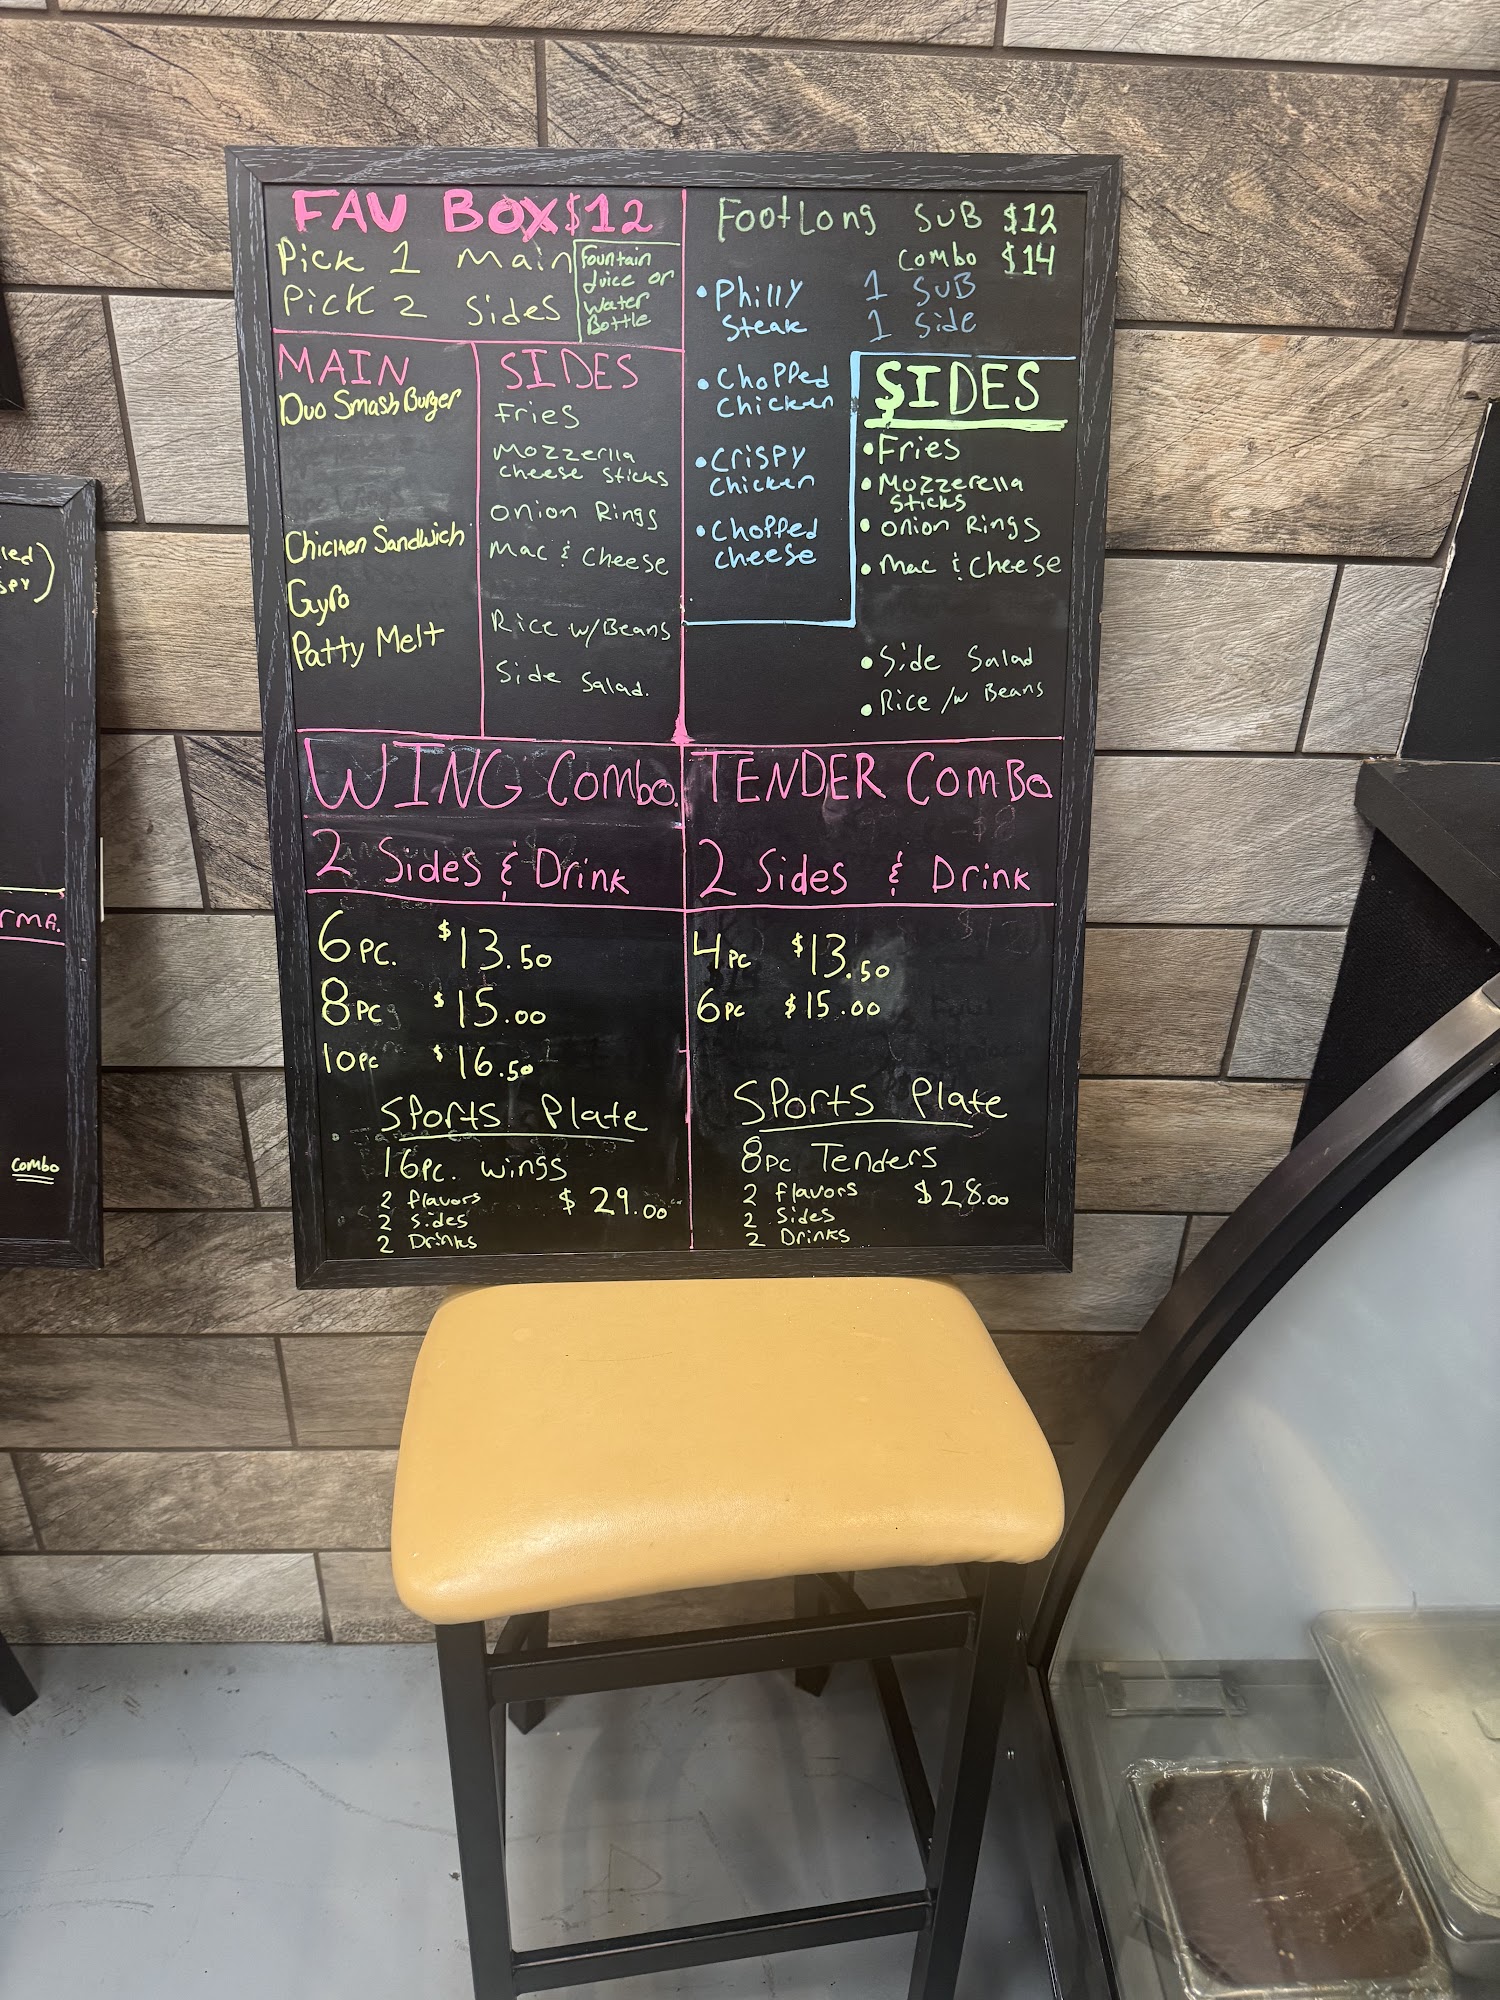 FAV BOX $12
Pick 1 Main
Pick 2 Sides
Fountain
Juice or
Water
Bottle
MAIN
Duo Smash Burger
Chicken Sandwich
Gyro
Patty Melt
SIDES
Fries
Mozzerlla
Cheese Sticks
Onion Rings
Mac & Cheese
Rice w/Beans
Side Salad.
FootLong SUB $12
Combo $14
1 SUB
1 Side
• Philly
Steak
• Chopped
Chicken
• Crispy
Chicken
• Chopped
Cheese
SIDES
• Fries
• Mozzerella
Sticks
• Onion Rings
• Mac & Cheese
• Side Salad
• Rice /w Beans
WING Combo.
2 Sides & Drink
6 PC. $13.50
8 PC $15.00
10 PC $16.50
Sports Plate
16 PC. Wings
2 Flavors $29.00
2 Sides
2 Drinks
TENDER COMBO
2 Sides & Drink
4 PC $13.50
6 PC $15.00
Sports Plate
8 PC Tenders
2 Flavors $28.00
2 Sides
2 Drinks
Combo